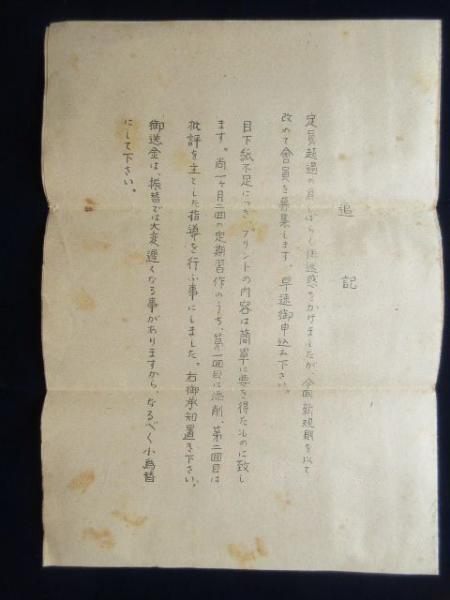 追記
定員超過の為しばらく御迷惑をかけましたが、今回新規則を以て
改めて會員を募集します。早速御申込み下さい。
目下紙不足につき、プリントの内容は簡單に要を得たものに致し
ます。尚一ヶ月二回の定期習作のうち、第一回目は添削、第二回目は
批評を主とした指導を行ふ事にしました。右御承知置き下さい。
御送金は、振替では大変遅くなる事がありますから、なるべく小為替
にして下さい。